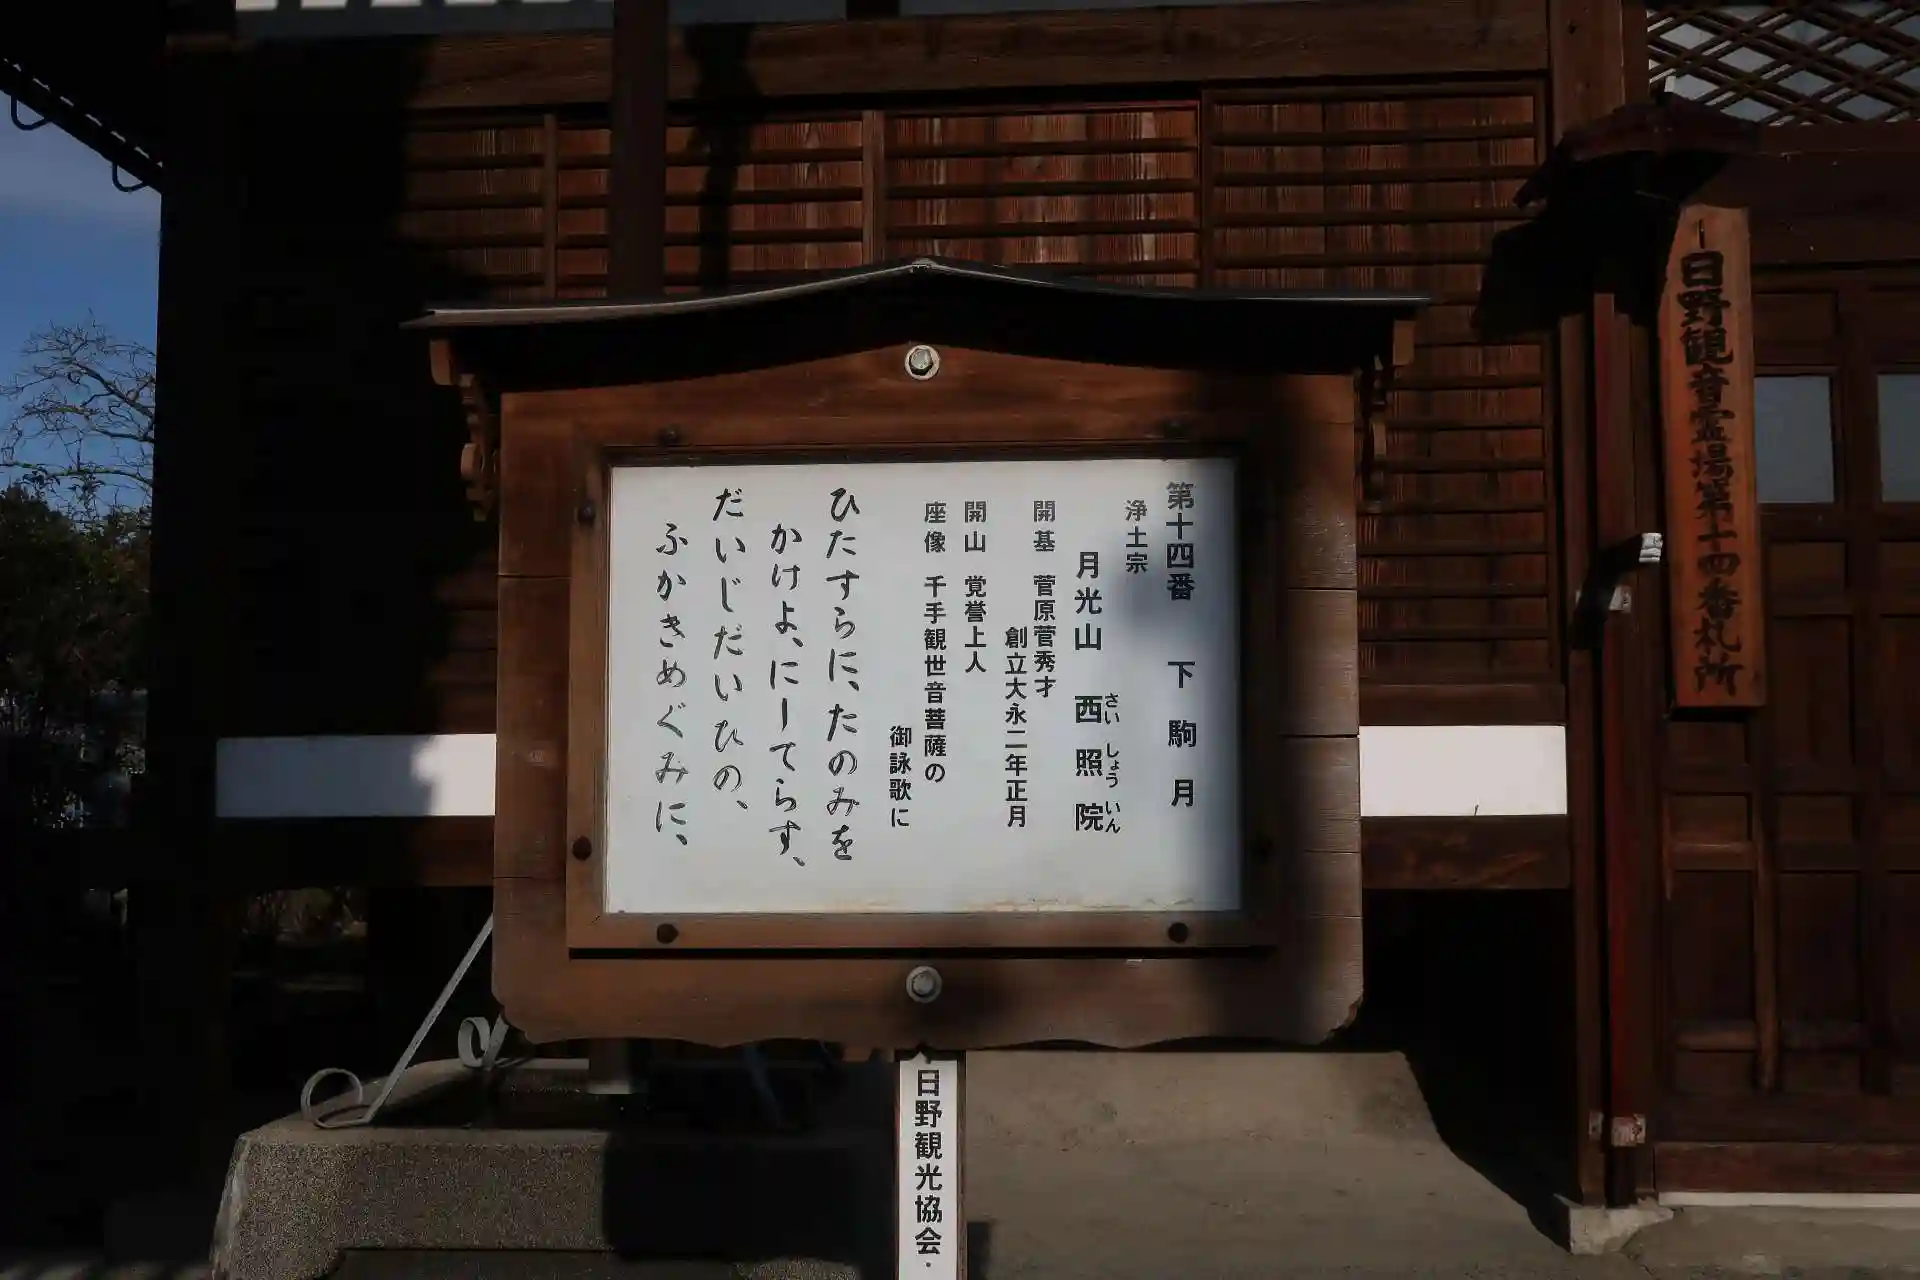 第十四番 下駒月
浄土宗
月光山 西照院
さいしょういん
開基 菅原菅秀才
創立大永二年正月
開山 覚誉上人
座像 千手観世音菩薩の
御詠歌に
ひたすらに、たのみを
かけよ、にしてらす、
だいじだいひの、
ふかきめぐみに、
日野観音霊場第十四番札所
日野観光協会・